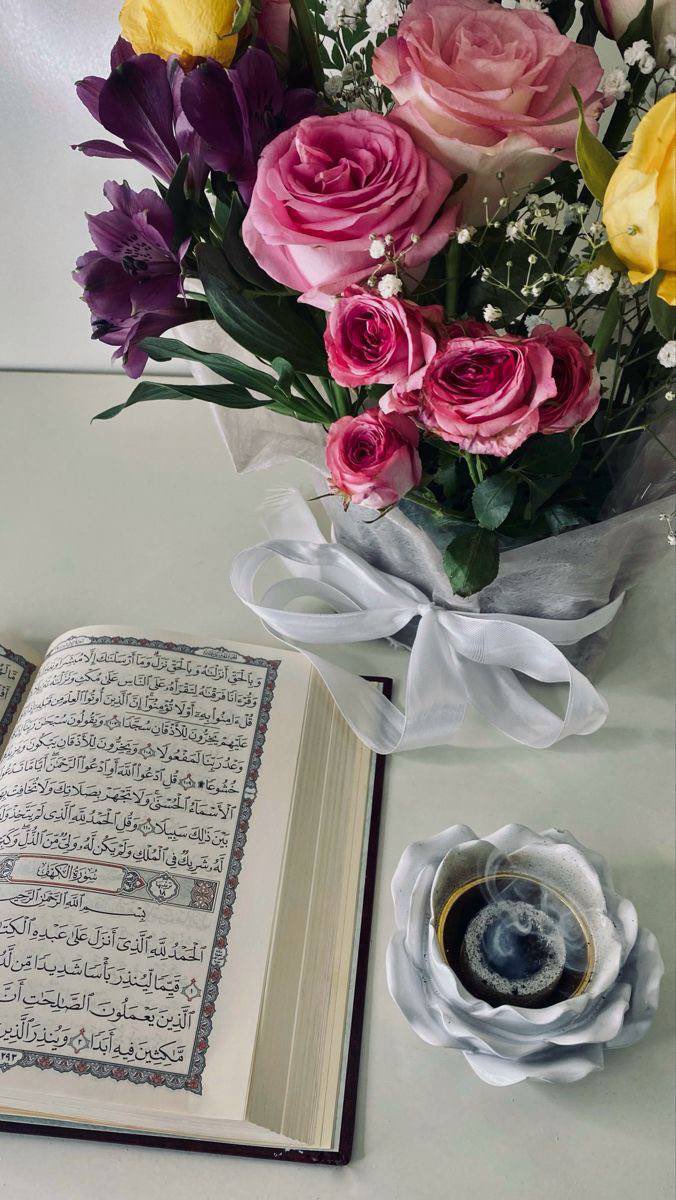 وَبِٱلْحَقِّ أَنزَلْنَٰهُ وَبِٱلْحَقِّ نَزَلَ وَمَآ أَرْسَلْنَٰكَ إِلَّا مُبَشِّرًا
وَقُرْءَانًا فَرَقْنَٰهُ لِتَقْرَأَهُۥ عَلَى ٱلنَّاسِ عَلَىٰ مُكْثٍ وَنَزَّلْنَٰهُ
قُلْ ءَامِنُوا۟ بِهِۦٓ أَوْ لَا تُؤْمِنُوٓا۟ إِنَّ ٱلَّذِينَ أُوتُوا۟ ٱلْعِلْمَ مِن
عَلَيْهِمْ يَخِرُّونَ لِلْأَذْقَانِ سُجَّدًا ١٠٧ وَيَقُولُونَ سُبْحَٰنَ
وَعْدُ رَبِّنَا لَمَفْعُولًا ١٠٨ وَيَخِرُّونَ لِلْأَذْقَانِ يَبْكُونَ
خُشُوعًا ١٠٩ قُلِ ٱدْعُوا۟ ٱللَّهَ أَوِ ٱدْعُوا۟ ٱلرَّحْمَٰنَ أَيًّا مَّا تَدْعُوا۟
ٱلْأَسْمَآءُ ٱلْحُسْنَىٰ وَلَا تَجْهَرْ بِصَلَاتِكَ وَلَا تُخَافِتْ بِهَا
بَيْنَ ذَٰلِكَ سَبِيلًا ١١٠ وَقُلِ ٱلْحَمْدُ لِلَّهِ ٱلَّذِى لَمْ يَتَّخِذْ
لَّهُۥ شَرِيكٌ فِى ٱلْمُلْكِ وَلَمْ يَكُن لَّهُۥ وَلِىٌّ مِّنَ ٱلذُّلِّ
سُورَةُ الكَهْفِ
بِسْمِ ٱللَّهِ ٱلرَّحْمَٰنِ ٱلرَّحِيمِ
ٱلْحَمْدُ لِلَّهِ ٱلَّذِىٓ أَنزَلَ عَلَىٰ عَبْدِهِ
قَيِّمًا لِّيُنذِرَ بَأْسًا شَدِيدًا مِّن
ٱلَّذِينَ يَعْمَلُونَ ٱلصَّٰلِحَٰتِ أَنَّ
مَّٰكِثِينَ فِيهِ أَبَدًا ٣ وَيُنذِرَ ٱلَّذِينَ
٢٩٣